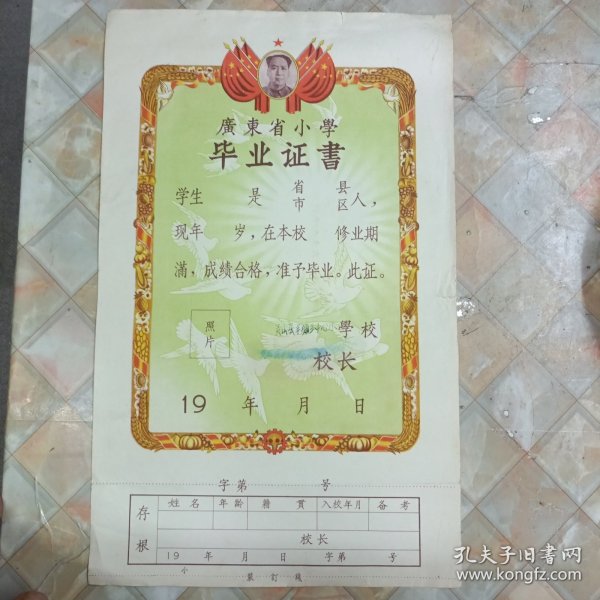 廣東省小學
毕业证書
学生 是 省市 县区人，
现年 岁，在本校 修业期
满，成绩合格，准予毕业。此证。
照片
學校
校长
19 年 月 日
字第 号
存根
姓名 年龄 籍貫 入校年月 备考
校长
19 年 月 日 字第 号
小 装訂綫
孔夫子旧書网
www.kongfz.com